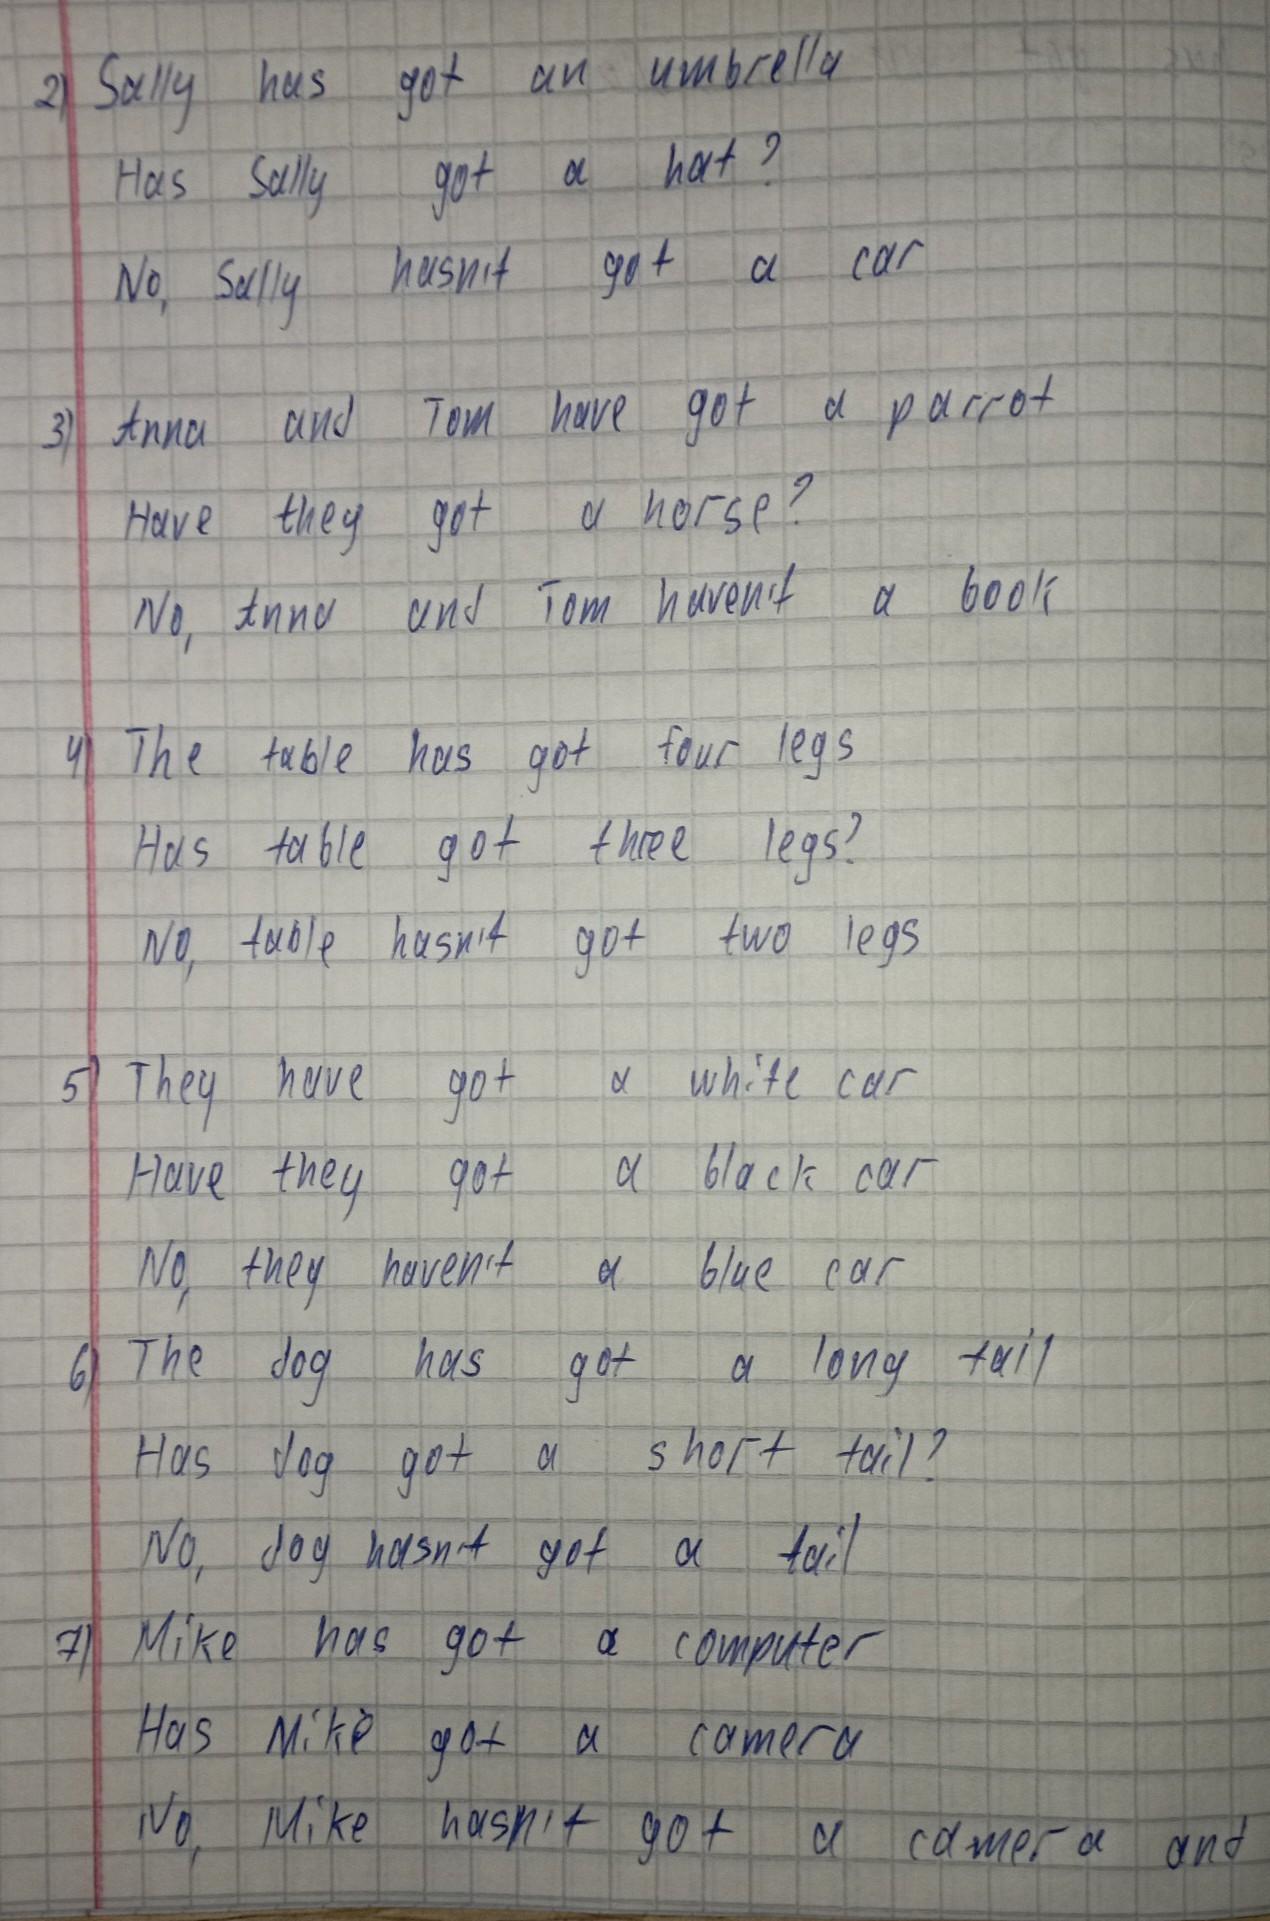 2) Sally has got an umbrella
Has Sally got a hat?
No, Sally hasn't got a car
3) Anna and Tom have got a parrot
Have they got a horse?
No, Anna and Tom haven't a book
4) The table has got four legs
Has table got three legs?
No, table hasn't got two legs
5) They have got a white car
Have they got a black car
No, they haven't a blue car
6) The dog has got a long tail
Has dog got a short tail?
No, dog hasn't got a tail
7) Mike has got a computer
Has Mike got a camera
No, Mike hasn't got a camera and